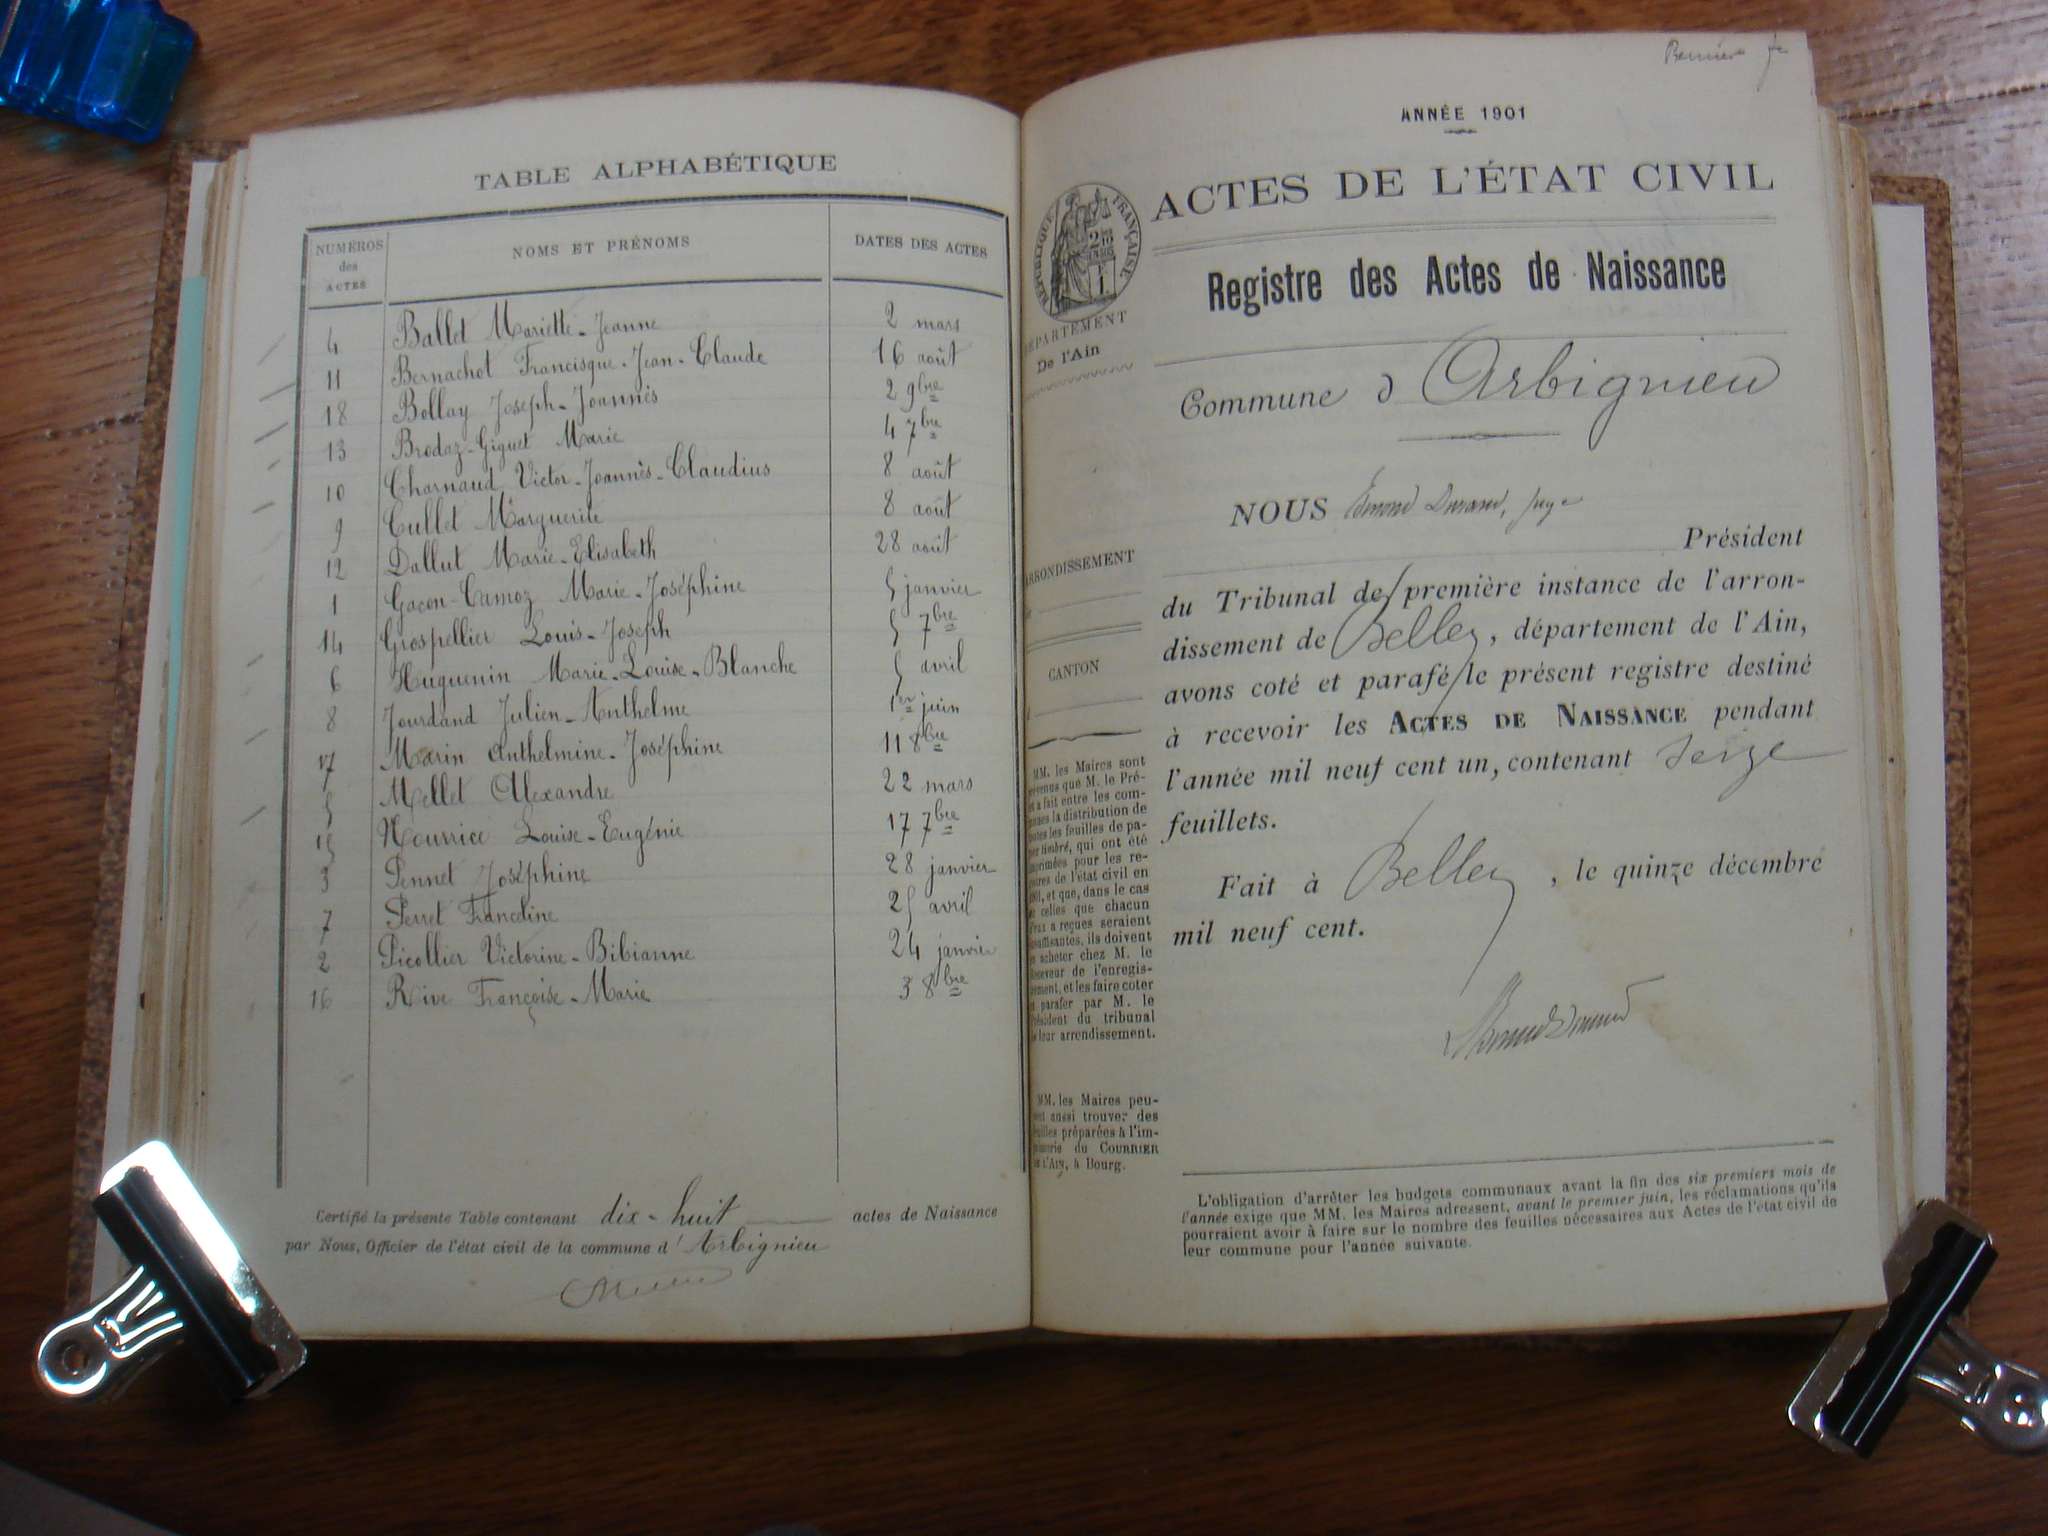 TABLE ALPHABÉTIQUE
NUMÉROS des ACTES
NOMS ET PRÉNOMS
DATES DES ACTES
4 Ballet Mariette-Jeanne 2 mars
11 Bernachot Francisque-Jean-Claude 16 août
18 Bollay Joseph-Joannès 2 9bre
13 Brodaz-Giguet Marie 4 7bre
10 Charnaud Victor-Joannès-Claudius 8 août
9 Cullet Marguerite 8 août
12 Dallut Marie-Elisabeth 28 août
1 Gacon-Camoz Marie-Joséphine 5 janvier
14 Grospellier Louis-Joseph 5 7bre
6 Huguenin Marie-Louise-Blanche 5 avril
8 Jourdand Julien-Anthelme 1er juin
17 Marin Anthelmine-Joséphine 11 8bre
5 Mellet Alexandre 22 mars
15 Nourrice Louise-Eugénie 17 7bre
3 Pennet Joséphine 28 janvier
7 Perret Franceline 25 avril
2 Picollier Victorine-Bibianne 24 janvier
16 Rive Françoise-Marie 3 8bre
Certifié la présente Table contenant dix-huit actes de Naissance
par Nous, Officier de l'état civil de la commune d'Arbignieu
ANNÉE 1901
ACTES DE L'ÉTAT CIVIL
RÉPUBLIQUE FRANÇAISE
Registre des Actes de Naissance
DÉPARTEMENT
De l'Ain
Commune d Arbignieu
NOUS Edmond Durand, juge
Président
du Tribunal de première instance de l'arron-
dissement de Belley, département de l'Ain,
avons coté et parafé le présent registre destiné
à recevoir les ACTES DE NAISSANCE pendant
l'année mil neuf cent un, contenant seize
feuillets.
Fait à Belley, le quinze décembre
mil neuf cent.
ARRONDISSEMENT
CANTON
MM. les Maires sont
prévenus que M. le Pré-
a fait entre les com-
la distribution de
toutes les feuilles de pa-
pier timbré, qui ont été
imprimées pour les re-
de l'état civil en
et que, dans le cas
celles que chacun
d'eux a reçues seraient
insuffisantes, ils doivent
acheter chez M. le
Receveur de l'enregis-
trement, et les faire coter
parafer par M. le
Président du tribunal
leur arrondissement.
MM. les Maires peu-
aussi trouver des
feuilles préparées à l'im-
primerie du COURRIER
DE L'AIN, à Bourg.
L'obligation d'arrêter les budgets communaux avant la fin des six premiers mois de
l'année exige que MM. les Maires adressent, avant le premier juin, les réclamations qu'ils
pourraient avoir à faire sur le nombre des feuilles nécessaires aux Actes de l'état civil de
leur commune pour l'année suivante.